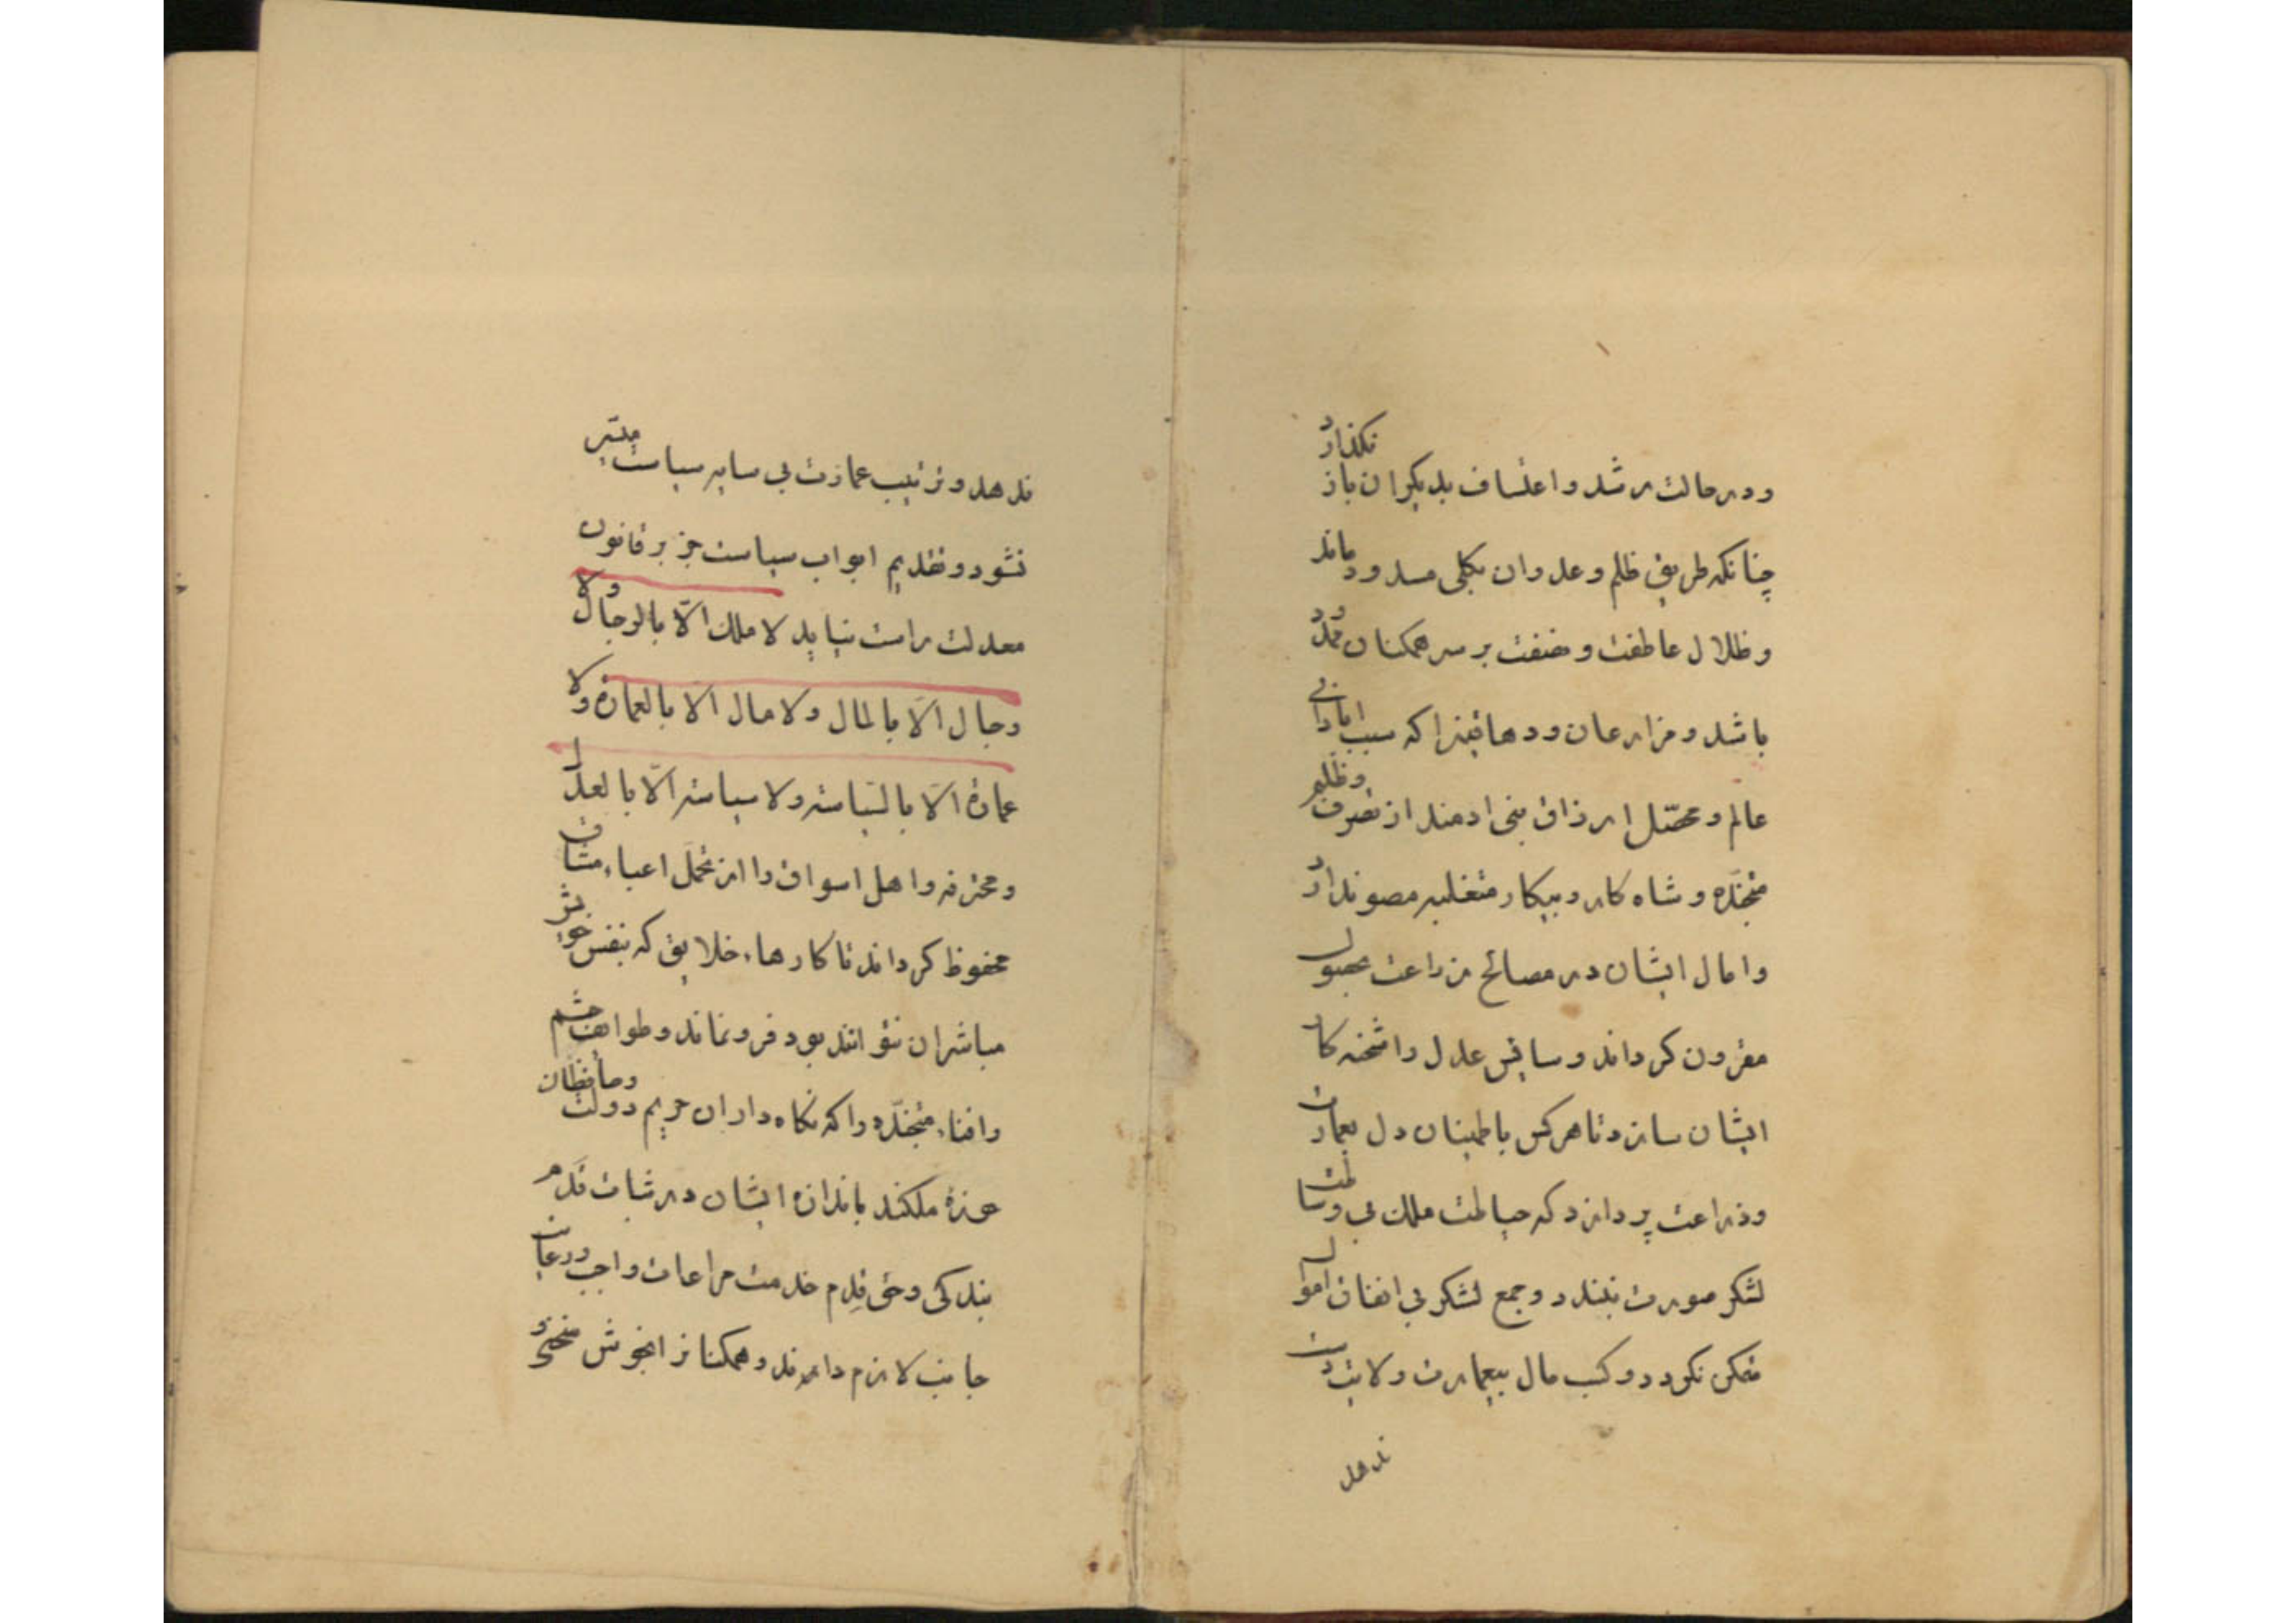 ودر حالت رشد و اعتساف بدیکران باز نکذارد
چنانکه طریق ظلم و عدوان بکلی مسدود ماند
و ظلال عاطفت و منفقت بر سر همکنان ممدود
باشد و مزارعان و دهاقینرا که سبب ابادانی
عالم و محصّل ارزاق بنی ادمند از تصرف و ظلم
متجنّده و شاه کار و بیکار متغلبه مصون دارد
و امال ایشان در مصالح مزراعت بحبول
مقرون کرداند و سایس عدل را شحنه کار
ایشان سازد تا هر کس باطمینان دل بعمارت
و ذراعت پردازد که حیاطت ملک بی وساطت
لشکر صورت نبندد و جمع لشکر بی انفاق اموال
ممکن نکردد و کسب مال بیعمارت ولایت دست
ندهد
ندهد و ترتیب عمارت بی سایه سیاست میسّر
نشود و تقدیم ابواب سیاست جز بر قانون
معدلت راست نیاید لا ملک الّا بالرجال ولا
رجال الّا بالمال ولا مال الّا بالعمارة ولا
عمارة الّا بالسّیاسة ولا سیاسة الّا بالعدل
و محترفه و اهل اسواق را از تحمّل اعباء مشاق
محفوظ کرداند تا کارهاء خلایق که بنفس خویش
مباشر ان نتوانند بود فرو نماند و طوایف حشم
وافناء متجنّده را که نکاه داران حریم دولت و حافظان
حوزهٔ ملکند باندازه ایشان در ثبات قدم
بندکی و حق قدم خدمت مراعات واجب و رعایت
جانب لازم دارند و همکنانرا بخوش منحی و